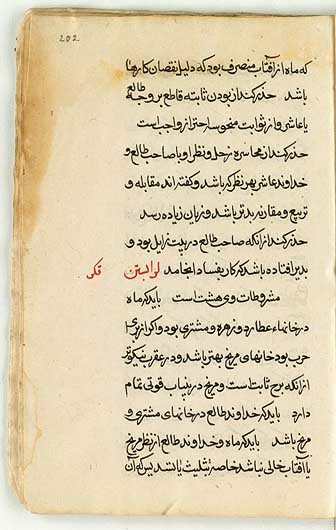 202
که ماه از آفتاب منصرف بود که دلیل نقصان کارها
باشد حذر کند از بودن ثابته قاطع بر وجه طالع
یا عاشر و از ثوابت منحوسا حتراز واجب است
حذر کند از محاسره زحل و نظر او با صاحب طالع و
خداوند عاشر بهر نظر که باشد و گفته اند مقابله و
تربیع و مقارنه بدتر باشد و زیان زیاده رسد
حذر کند از آنکه صاحب طالع در بیت زایل بود و
بدیر افتاده باشد که کار بفساد انجامد لوا بستن فکر
مشروطات وی هشت است باید که ماه
در خانهاء عطارد و زهره و مشتری بود و اگر از برای
حرب بود خانهای مریخ بهتر باشد و در عقرب نیکوتر
از آنکه برج ثابت است و مریخ در بنیاب قوتی تمام
دارد باید که خداوند طالع در خانهای مشتری و
مریخ باشد باید که ماه و خداوند طالع از نظر مریخ
یا آفتاب خالی نباشد خاصه تثلیث یا تسدیس که آن